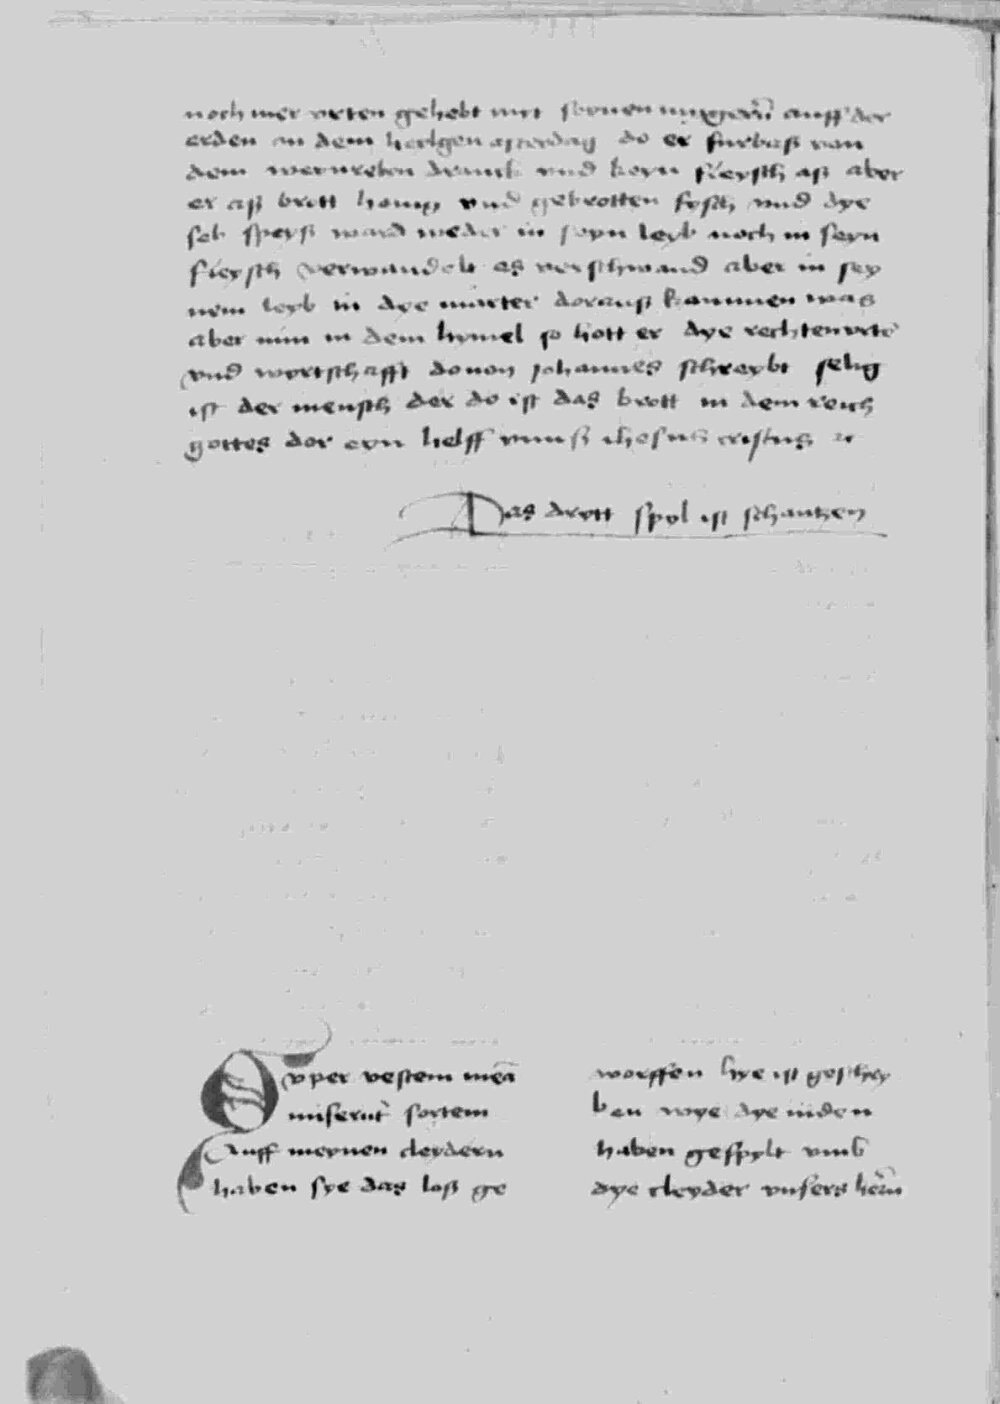 noch mer vrten gehebt mit seynen iungern auff der
erden an dem heilgen astertag do er furbaß von
dem weynreben dranck vnd keyn fleysch aß aber
er aß brott honig vnd gebrotten fysch vnd dye
selb speyß ward weder in seyn leyb noch in seyn
fleysch verwandelt es verschwand aber in sey
nem leyb in dye marter dorauß kummen was
aber nun in dem hymel so hott er dye rechten vrte
vnd wyrtschafft douon johannes schreybt selig
ist der mensch der do ist das brott in dem reich
gottes dor eyn helff vnnß ihesus cristus ꝛc
Das drytt spyl ist schantzen
Svper vestem meā
miserūt sortem
Auff meynen cleydern
haben sye das loß ge
worffen hye ist geschey
ben wye dye iuden
haben gespylt vmb
dye cleyder vnsers herrn